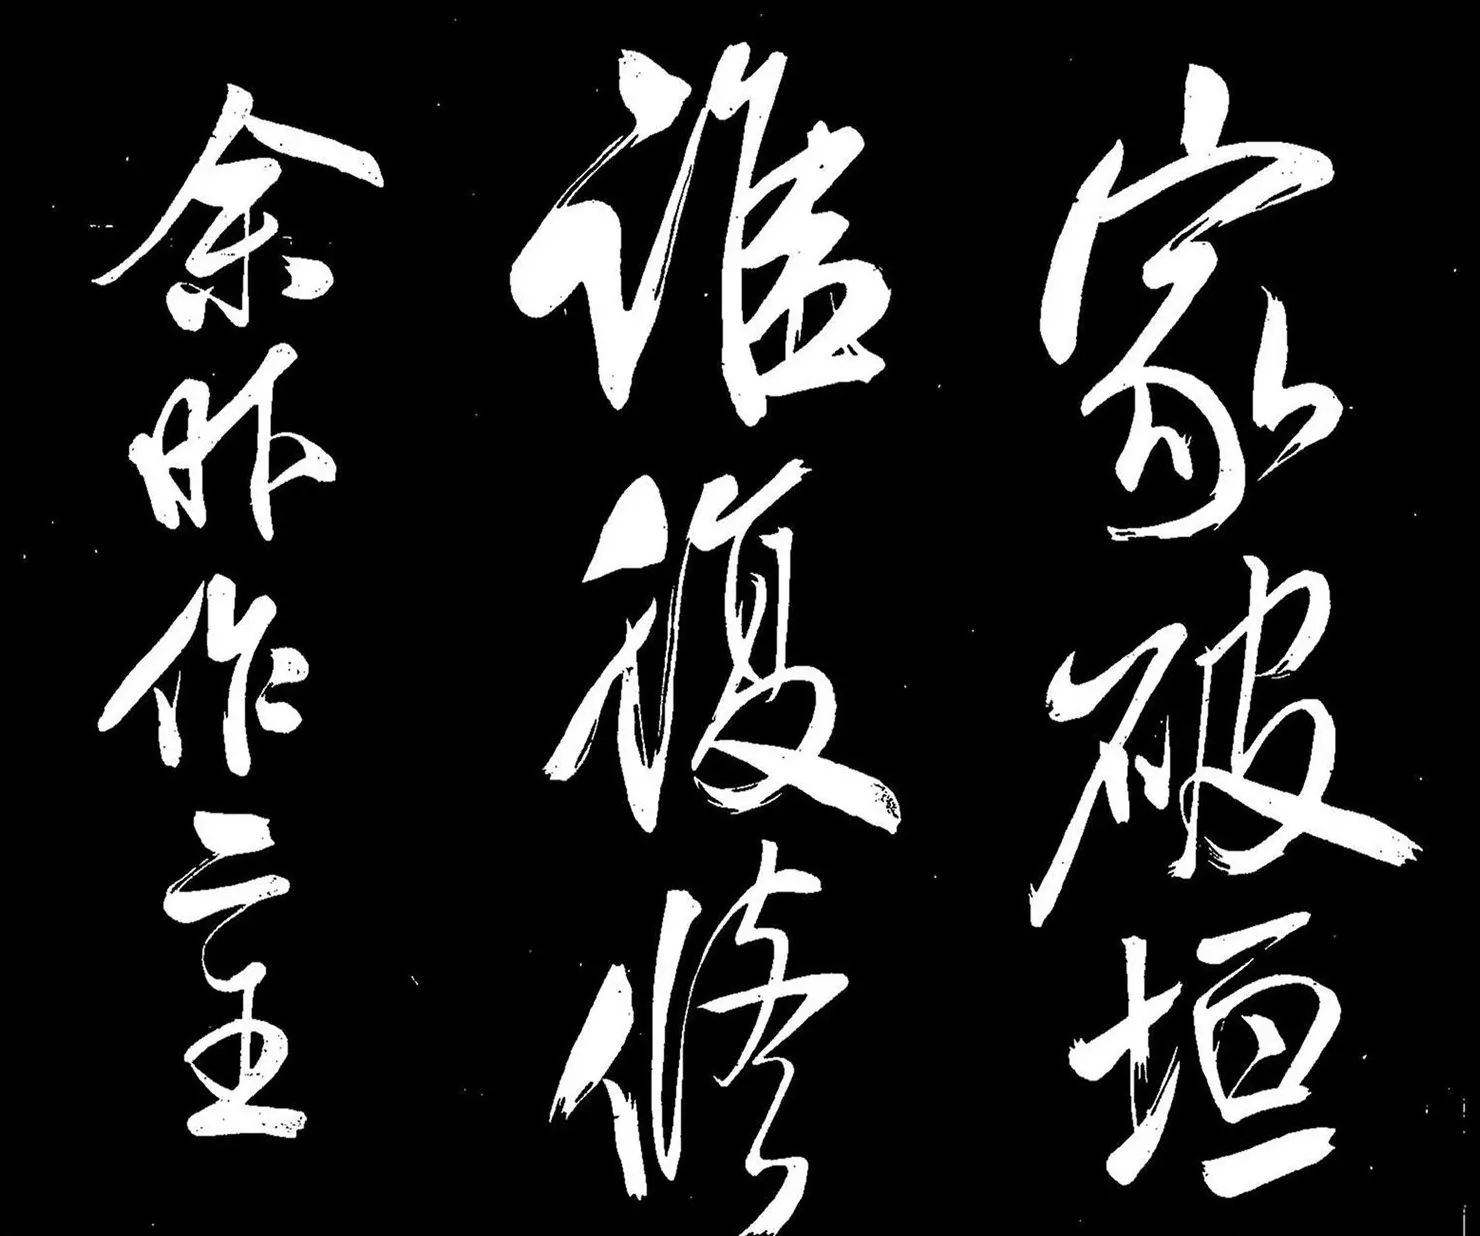 家破垣
誰復修
余昨作二主